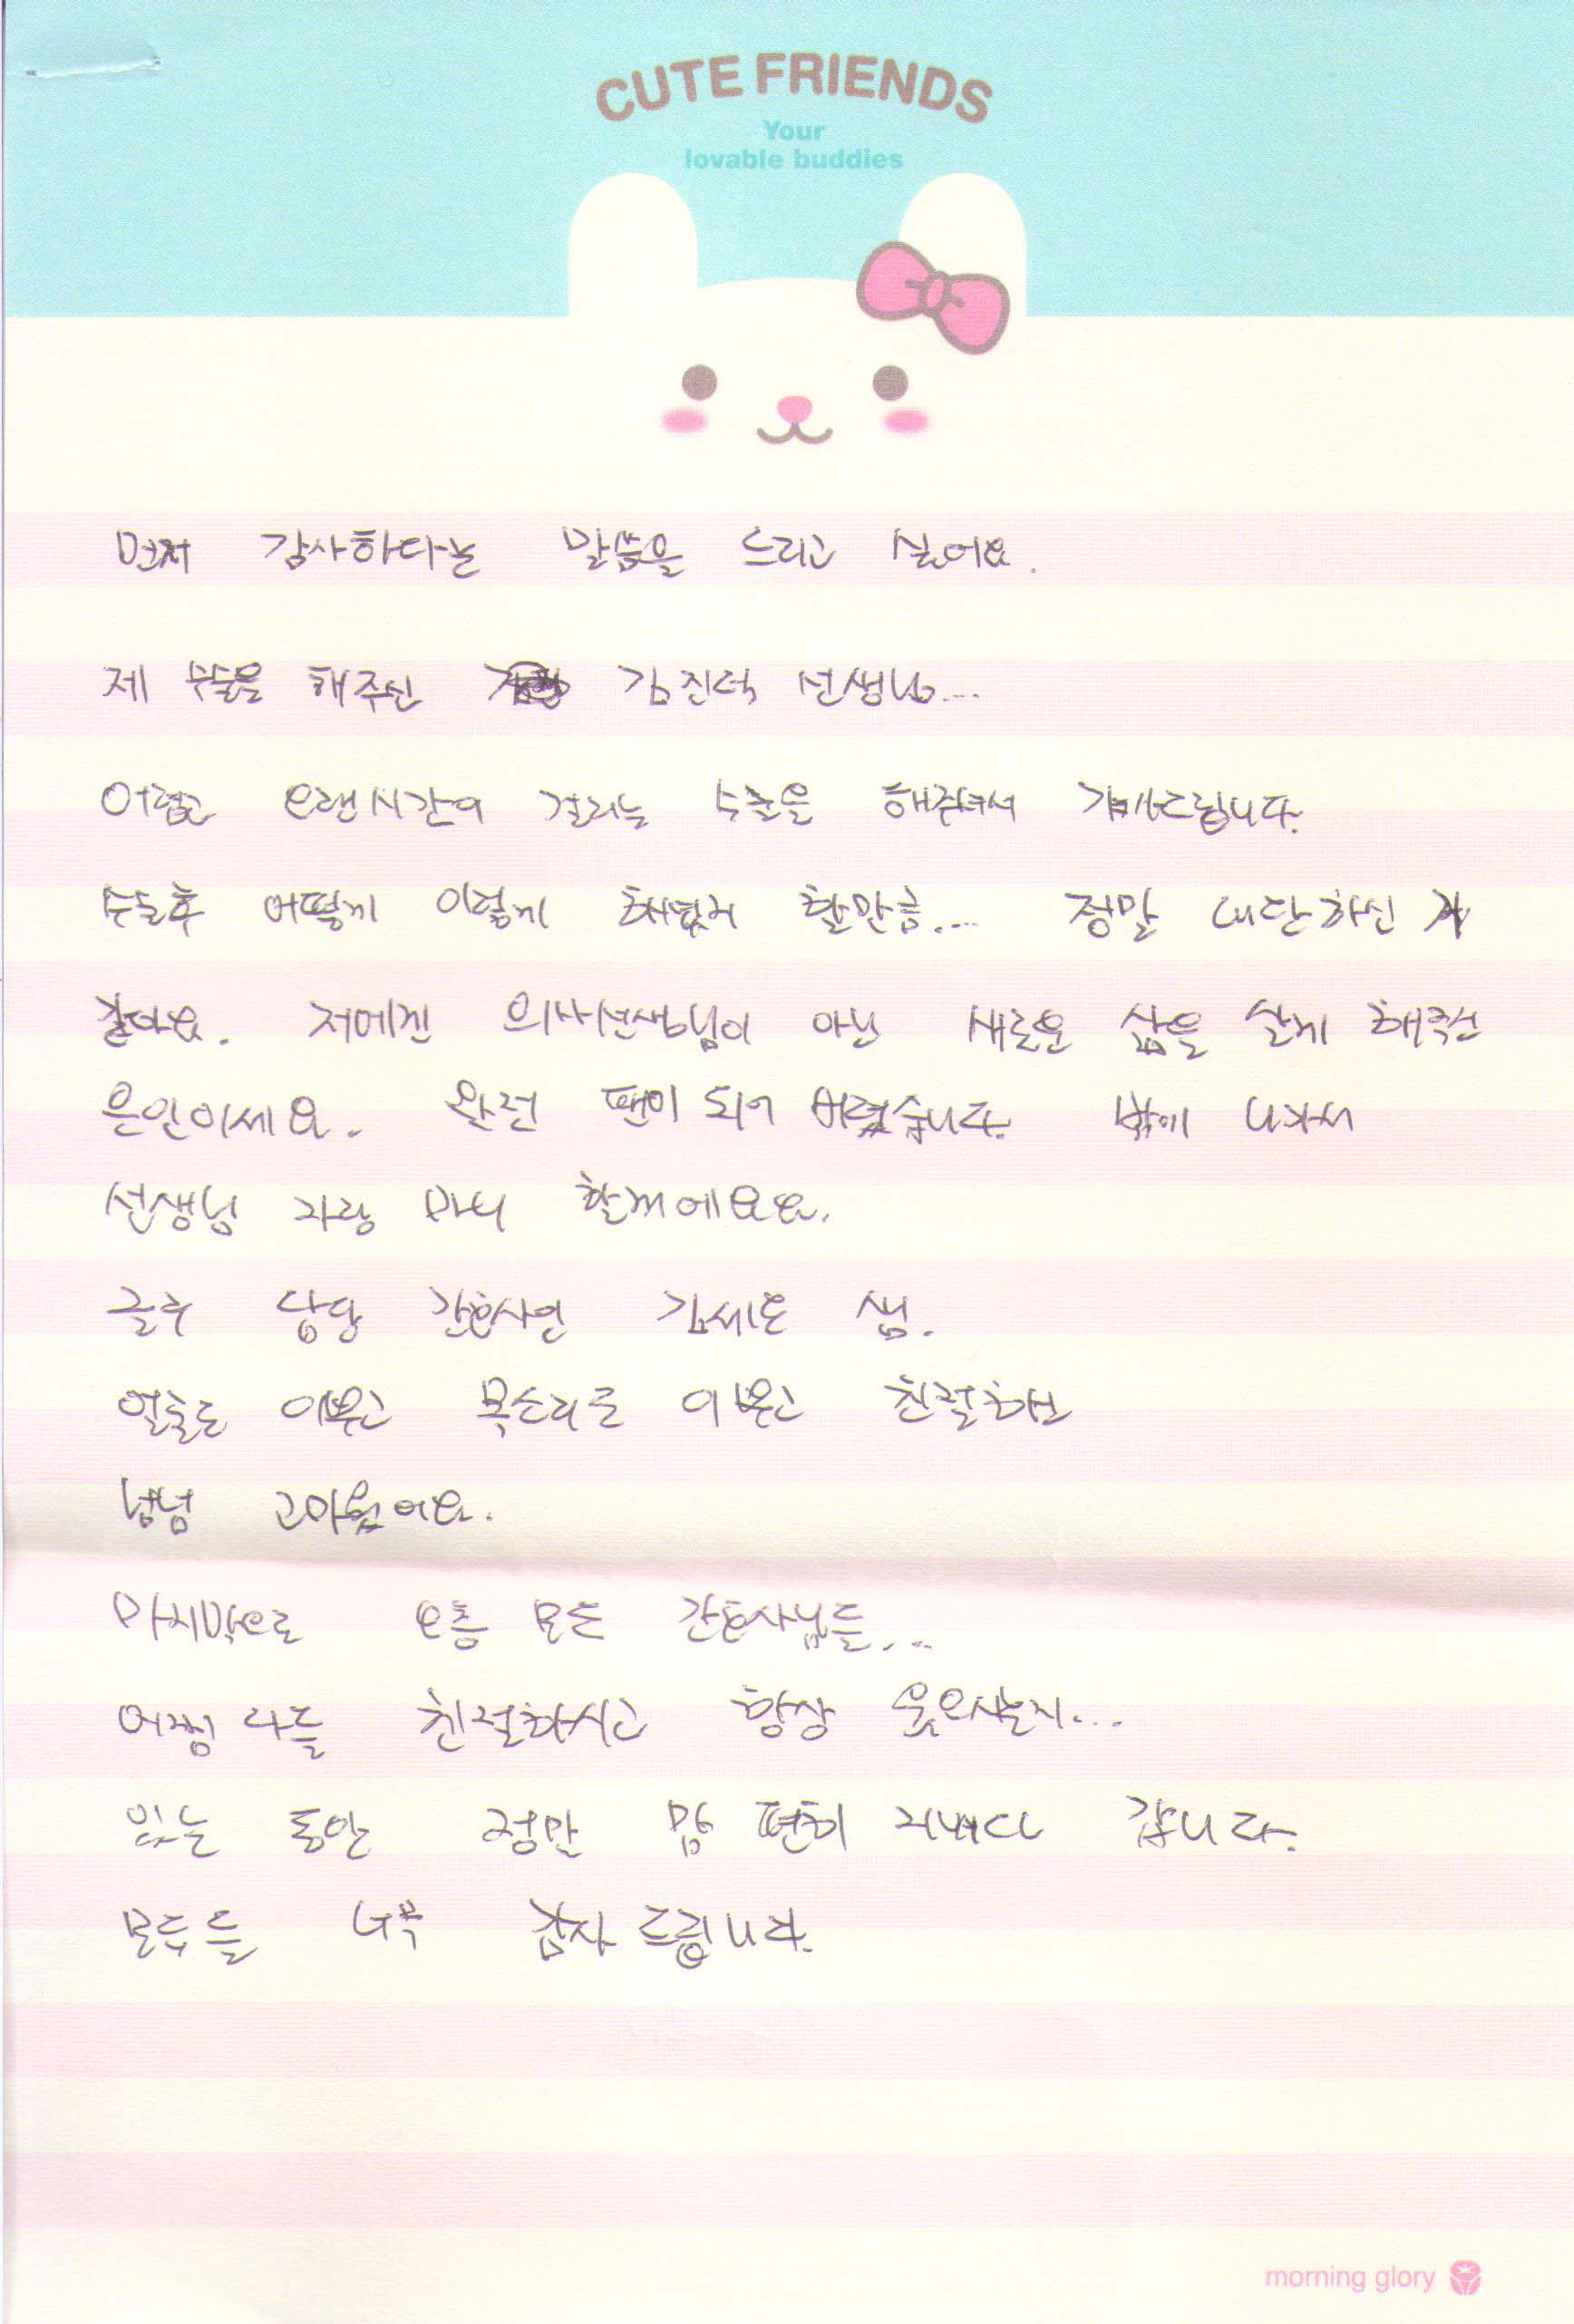 CUTE FRIENDS
Your
lovable buddies
먼저 감사하다는 말씀을 드리고 싶어요.
제 수술을 해주신 김진덕 선생님...
어렵고 오랜시간이 걸리는 수술을 해주셔서 감사드립니다.
수술후 어떻게 이렇게 해냈지 할만큼... 정말 대단하신 거
같아요. 저에겐 의사선생님이 아닌 새로운 삶을 살게 해주신
은인이세요. 완전 팬이 되어 버렸습니다. 밖에 나가서
선생님 자랑 마니 할께에요요.
글구 담당 간호사인 김세은 샘.
얼굴도 이쁘고 목소리도 이쁘고 친절하고
넘넘 고마웠어요.
마지막으로 5층 모든 간호사님들...
어쩜 다들 친절하시고 항상 웃으시는지...
있는 동안 정말 맘 편히 지내다 갑니다.
모두들 너무 감사 드립니다.
morning glory